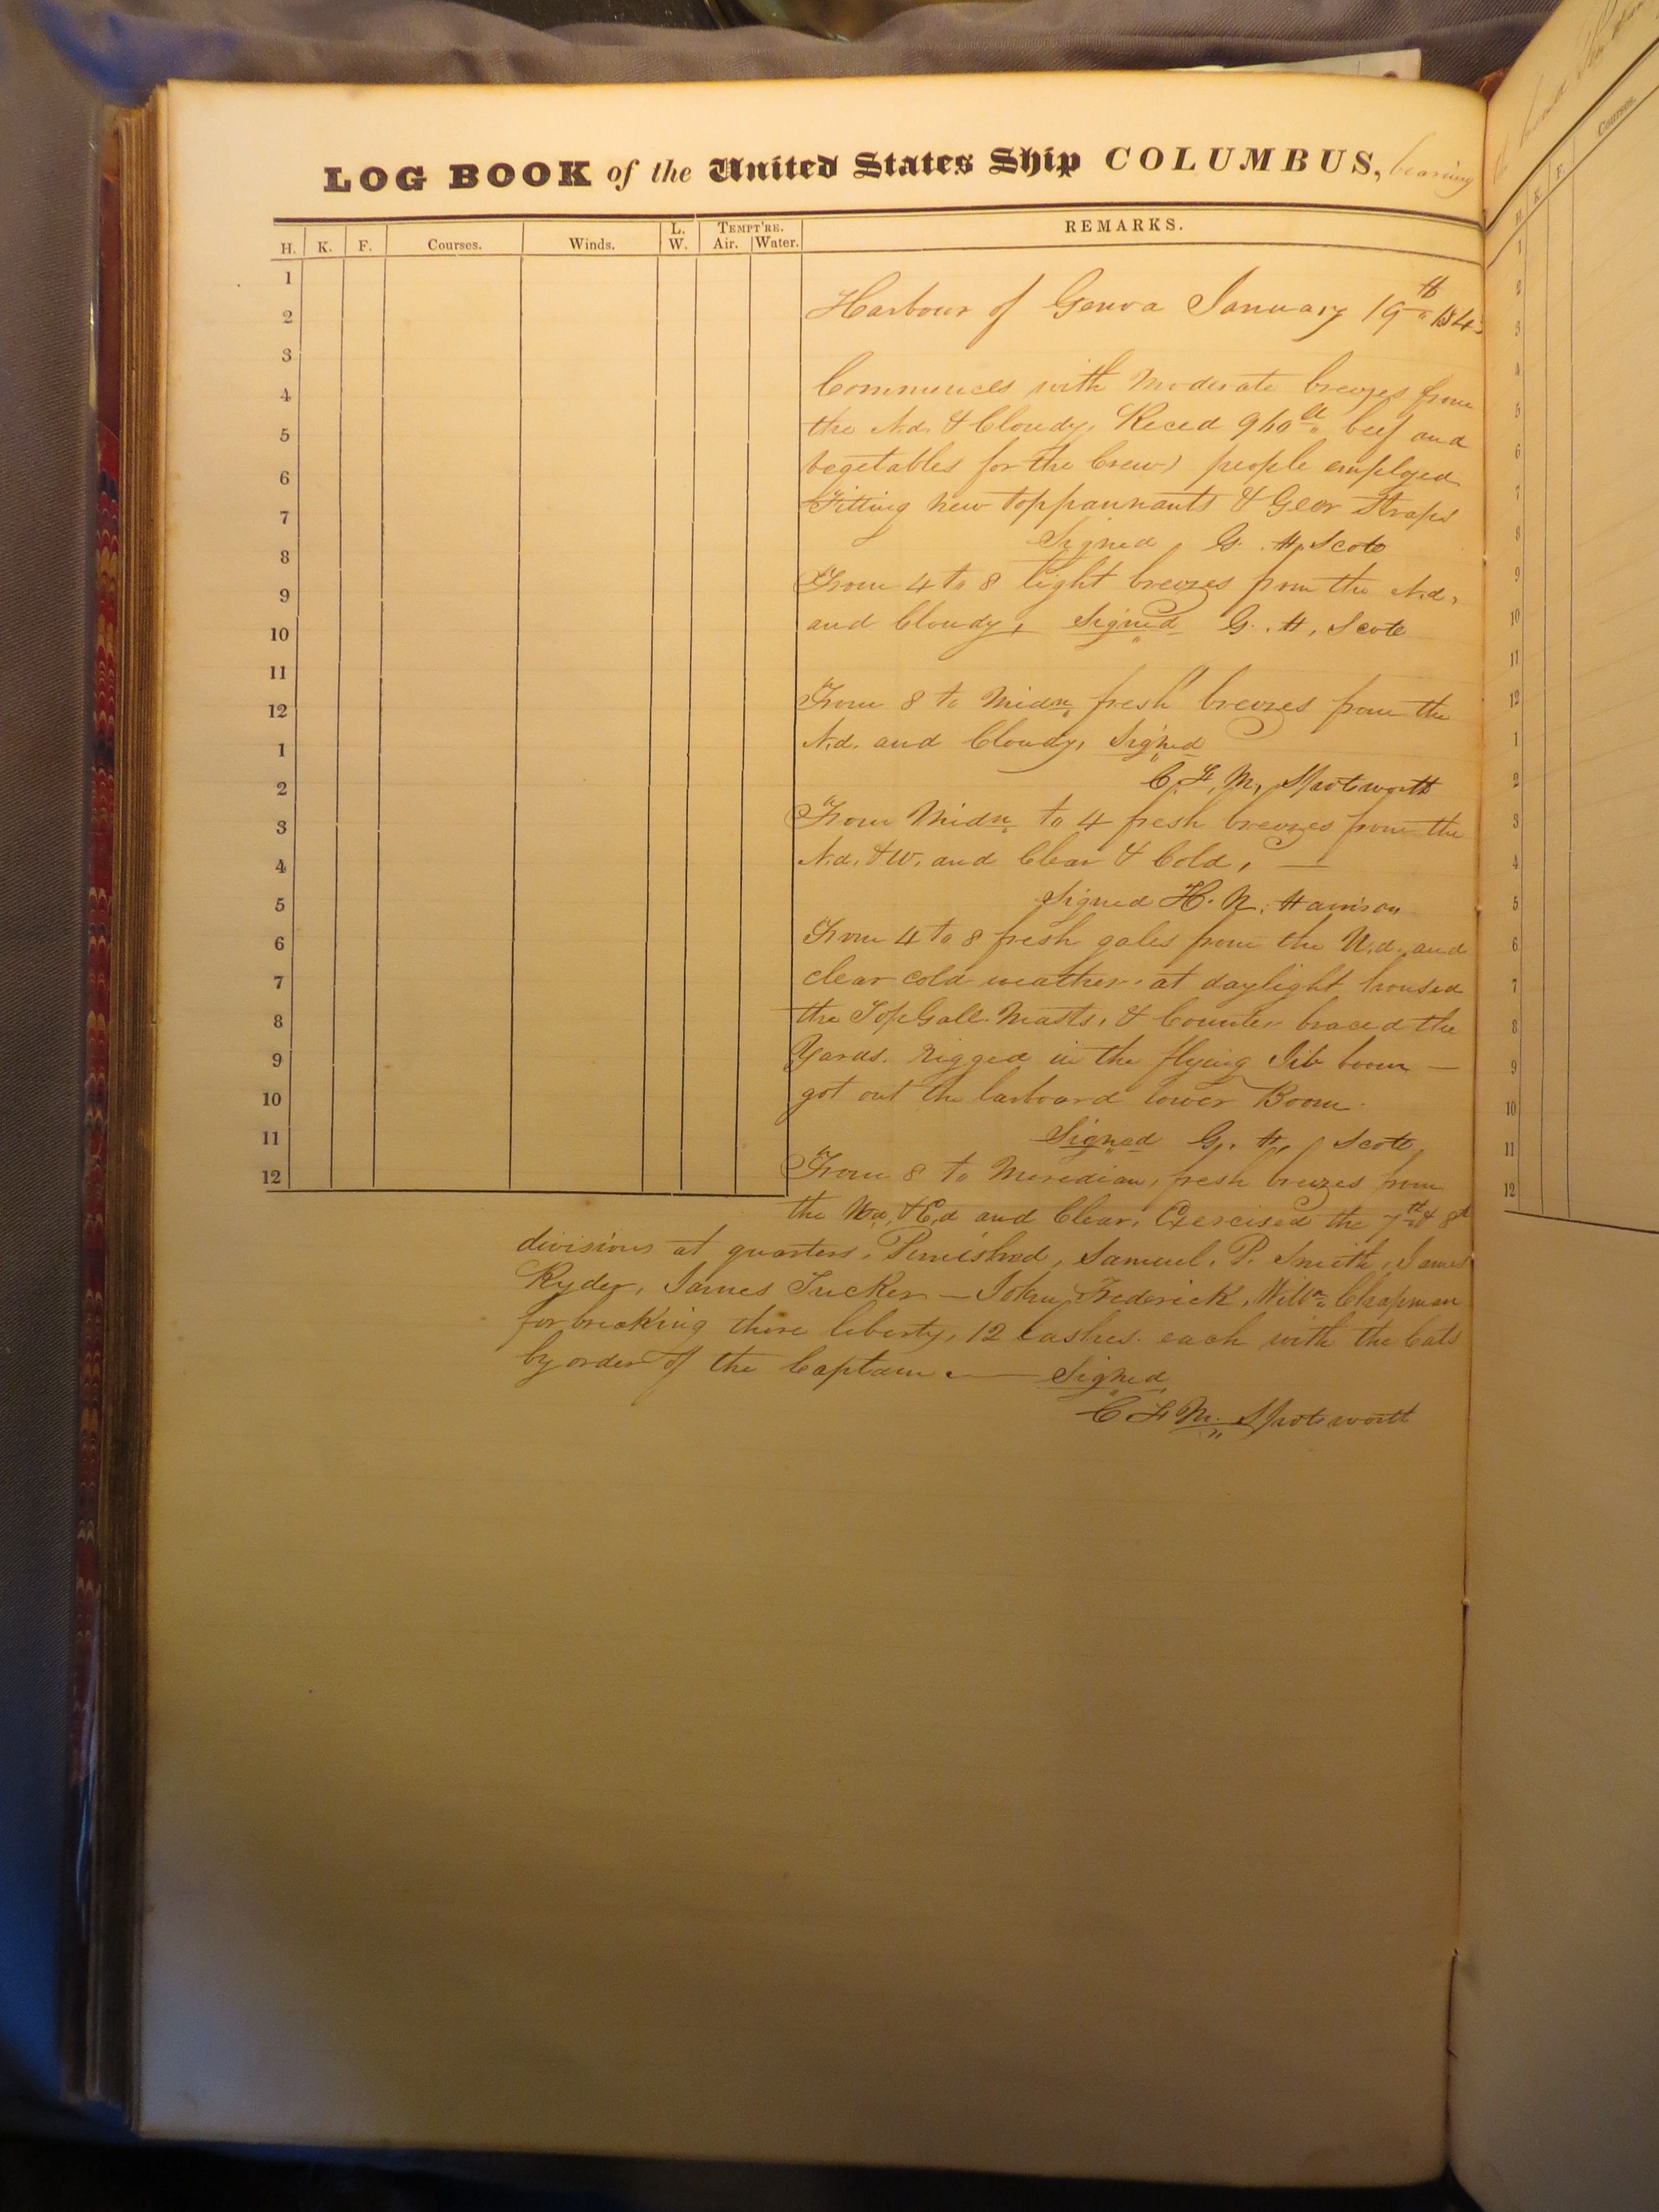 LOG BOOK of the United States Ship COLUMBUS, bearing
H. K. F. Courses. Winds. L. W. TEMPT'RE. Air. Water. REMARKS.
1
2
3
4
5
6
7
8
9
10
11
12
1
2
3
4
5
6
7
8
9
10
11
12
Harbour of Genoa January 19th 184
Commences with moderate breezes from
the N.d. & Cloudy, Reced 960 lb beef and
vegetables for the Crew, people employed
Fitting new top pannants & Geer Straps
Signed G. H. Scott
From 4 to 8 light breezes from the N.d,
and Cloudy, Signed G. H, Scott
From 8 to Midn, fresh breezes from the
N.d. and Cloudy, Signed
C. F. M, Spotsworth
From Midn, to 4 fresh breezes from the
N.d. & W. and Clear & Cold, —
Signed H. N. Harrison
From 4 to 8 fresh gales from the N.d. and
clear cold weather. at daylight housed
the Top Gall. Masts, & Counter braced the
Yards. rigged in the flying Jib boom —
got out the larboard lower Boom.
Signed G. H, Scott
From 8 to Meridian, fresh breezes from
the Nd, & E,d and Clear. Exercised the 7th & 8th
divisions at quarters. Punished, Samuel. P. Smith, James
Ryder, James Tucker — John Frederick, Willm Chapman
for breaking there liberty, 12 lashes. each with the Cats
by order of the Captain. — Signed,
C F M. Spotsworth
Courses.
H. K. F.
1
2
3
4
5
6
7
8
9
10
11
12
1
2
3
4
5
6
7
8
9
10
11
12